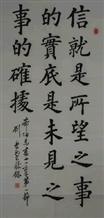 信就是所望之事
的實底是未見之
事的確據